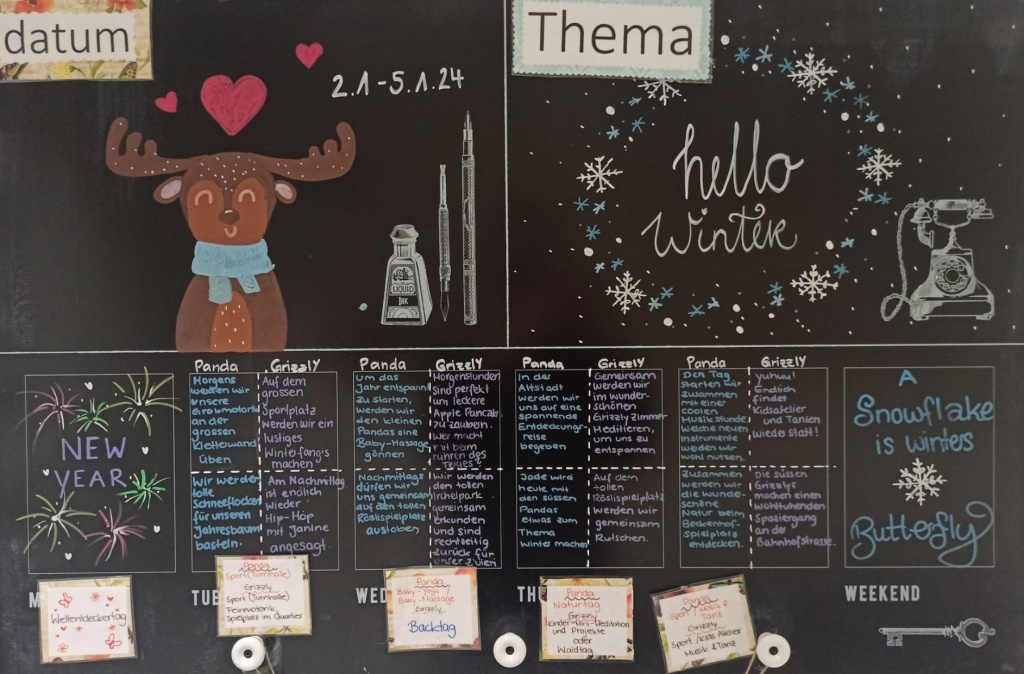 datum
Thema
2.1-5.1.24
LIQUID
INK
hello
Winter
Panda
Grizzly
Panda
Grizzly
Panda
Grizzly
Panda
Grizzly
NEW
YEAR
Morgens
werden wir
unsere
Grobmotorik
an der
grossen
Kletterwand
üben
Auf dem
grossen
Sportplatz
werden wir ein
lustiges
Winterfang's
machen
um das
Jahr entspannt
zu starten,
werden wir
den kleinen
Pandas eine
Baby-Massage
gönnen
Morgenstunden
sind perfekt
um leckere
Apple Pancakes
zu zaubern.
Wer macht
mit beim
rühren des
Teiges?
In der
Altstadt
werden wir
uns auf eine
spannende
Entdeckungs-
reise
begeben
Gemeinsam
werden wir
im wunder-
schönen
Grizzly Zimmer
Meditieren,
um uns zu
entspannen
Den Tag
starten wir
zusammen
mit einer
coolen
Musikstunde.
Welche neuen
Instrumente
werden wir
wohl nutzen
Yuhuu!
Endlich
findet
Kidsatelier
und Tanzen
wieder statt!
A
Snowflake
is winters
Butterfly
Wir werden
tolle
Schneeflocken
für unseren
Jahresbaum
basteln.
Am Nachmittag
ist endlich
wieder
Hip-Hop
mit Janine
angesagt.
Nachmittags
dürfen wir
uns gemeinsam
auf den tollen
Röslispielplatz
austoben
Wir werden
den tollen
Irchelpark
gemeinsam
erkunden
und sind
rechtzeitig
zurück für
unser Zvieri
Jade wird
heute mit
den süssen
Pandas
etwas zum
Thema
Winter machen
Auf dem
tollen
Röslispielplatz
werden wir
gemeinsam
Rutschen.
Zusammen
werden wir
die wunde-
schöne
Natur beim
Beckenhof-
spielplatz
entdecken.
Die süssen
Grizzlys
machen einen
wohltuhenden
Spaziergang
an der
Bahnhofstrasse.
M
TUE
WED
TH
WEEKEND
Weltentdeckertag
Panda
Sport (Turnhalle)
Grizzly
Sport (Turnhalle)
Feinmotorik,
Spielplatz im Quartier
Panda
Baby-Yoga /
Baby-Massage
Grizzly
Backtag
Panda
Naturtag
Grizzly
Kinder-Mini-Meditation
und Projekte
oder
Waldtag
Panda
Sport / Musik &
Tanz
Grizzly
Sport / Kids Atelier
Musik & Tanz